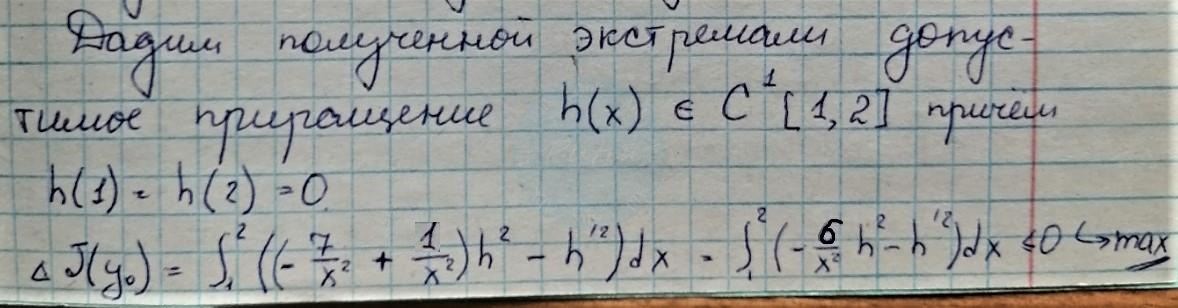 Дадим полученной экстремали допус-
тимое приращение h(x) ∈ C¹ [1, 2] причём
h(1) = h(2) = 0
Δ J(y₀) = ∫₁² ((- 7/x² + 1/x²) h² - h'²) dx = ∫₁² (- 6/x² h² - h'²) dx ≤ 0 ↪ max